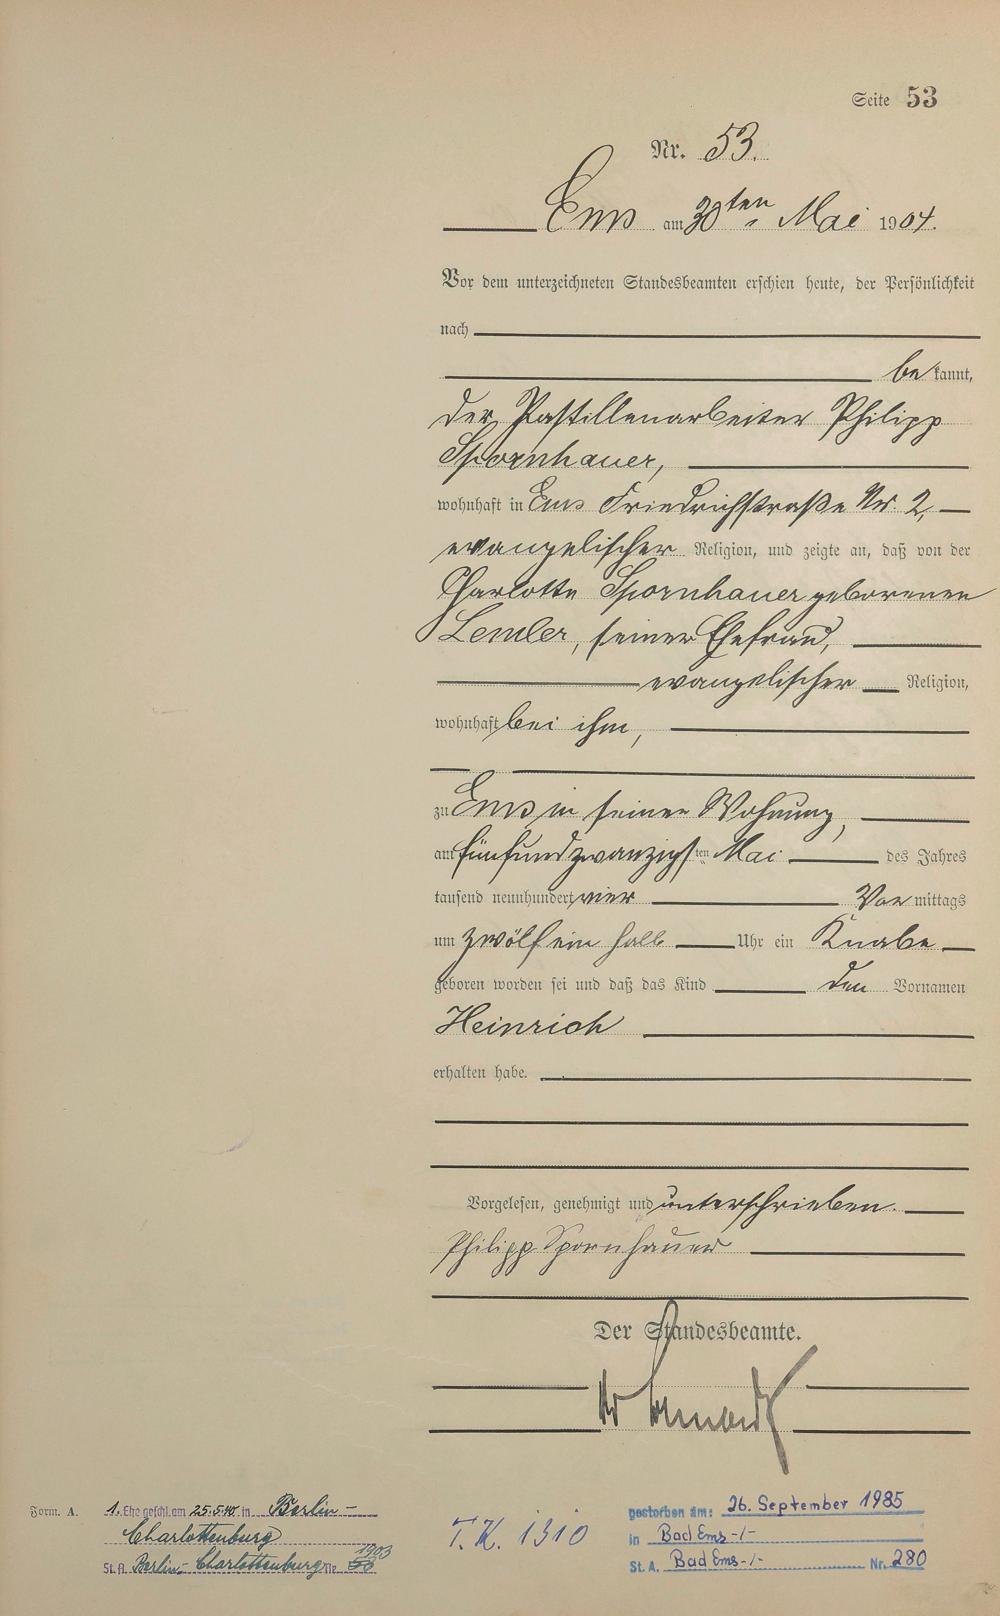 Seite 53
Nr. 53.
Ems am 30ten Mai 1904.
Vor dem unterzeichneten Standesbeamten erschien heute, der Persönlichkeit
nach
bekannt,
der Pastillenarbeiter Philipp
Spornhauer,
wohnhaft in Ems Friedrichstraße Nr. 2,
evangelischer Religion, und zeigte an, daß von der
Charlotte Spornhauer geborenen
Lemler, seiner Ehefrau,
evangelischer Religion,
wohnhaft bei ihm,
zu Ems in seiner Wohnung,
am fünfundzwanzigsten Mai des Jahres
tausend neunhundert vier Vormittags
um zwölf ein halb Uhr ein Knabe
geboren worden sei und daß das Kind den Vornamen
Heinrich
erhalten habe.
Vorgelesen, genehmigt und unterschrieben.
Philipp Spornhauer
Der Standesbeamte.
Form. A.
1. Ehe geschl. am 25.5.40. in Berlin-
Charlottenburg
St. A. Berlin-Charlottenburg Nr. 1903
T.K. 1310
gestorben am: 26. September 1985
in Bad Ems -/-
St. A. Bad Ems -/- Nr. 280